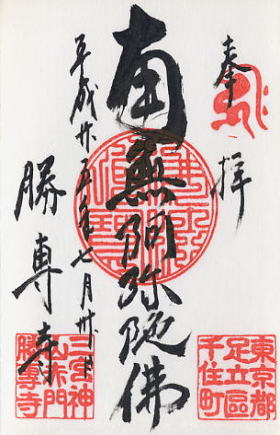 奉拝
南無阿弥陀佛
平成廿五年七月廿日
勝專寺
東京都
足立區
千住町
三宮神
山赤門
勝專寺